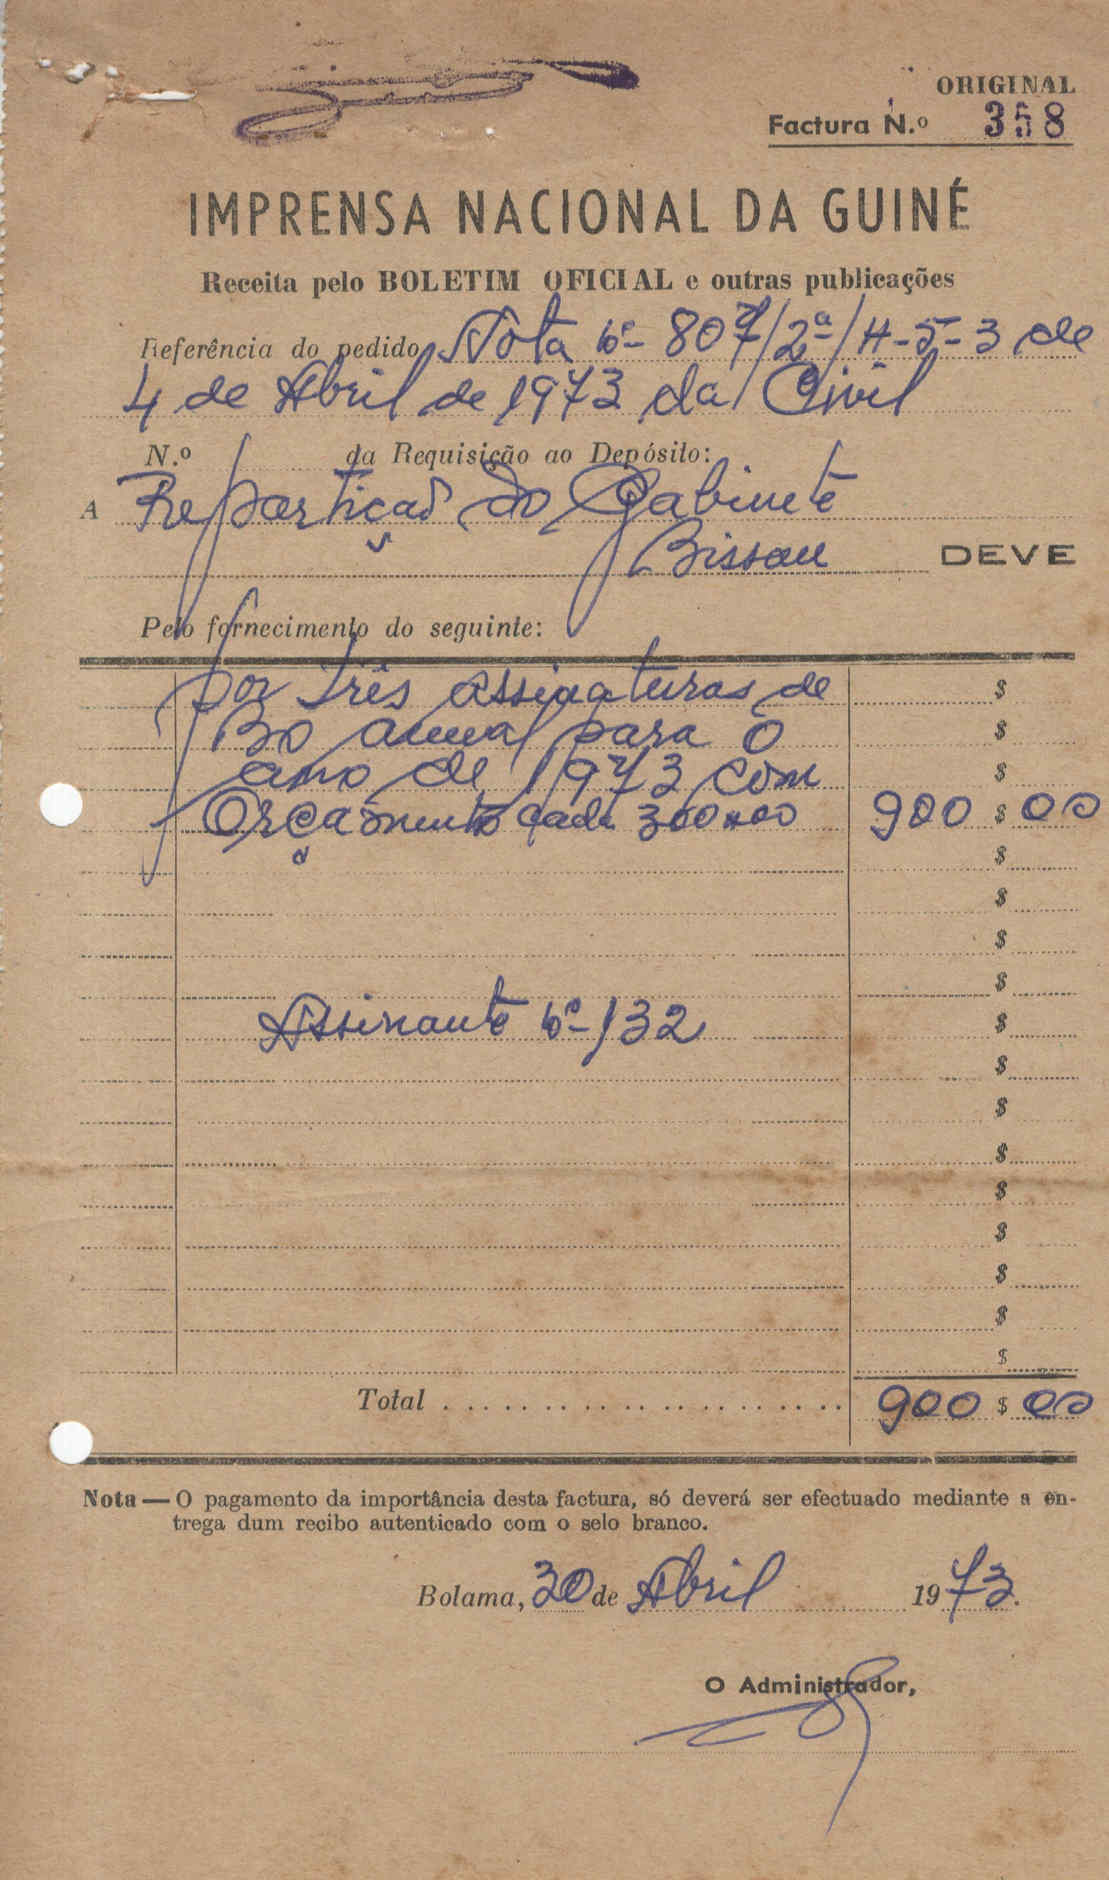 ORIGINAL
Factura N.º 358
IMPRENSA NACIONAL DA GUINÉ
Receita pelo BOLETIM OFICIAL e outras publicações
Referência do pedido Nota nº- 807/2ª/H-5-3 de
4 de Abril de 1973 da Civil
N.º da Requisição ao Depósito:
A Repartição do Gabinete
Bissau DEVE
Pelo fornecimento do seguinte:
por três assinaturas de $
BO anual para o $
ano de 1973 com $
Orçamento cada 300$00 900 $ 00
$
$
$
$
Assinante nº- 132 $
$
$
$
$
$
$
$
$
Total 900 $ 00
Nota — O pagamento da importância desta factura, só deverá ser efectuado mediante a en-
trega dum recibo autenticado com o selo branco.
Bolama, 30 de Abril 1973.
O Administrador,